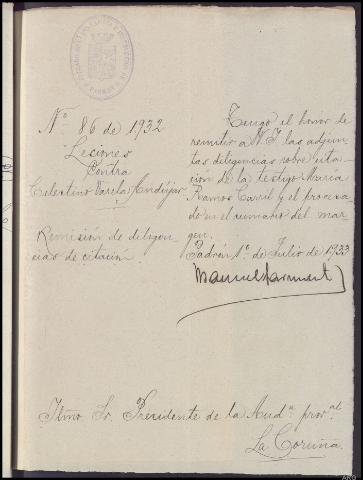 Nº 86 de 1932
Leciones
Contra
Celestino Varela Andújar
Remisión de diligen-
cias de citación
Tengo el honor de
remitir a V.I. las adjun-
tas diligencias sobre cita-
ción de la testigo María
Ramos Carril y el procesa-
do en el sumario del mar-
gen.
Padrón 1º de Julio de 1933
Manuel
Iltmo Sr. Presidente de la Audª provᵃˡ
La Coruña.